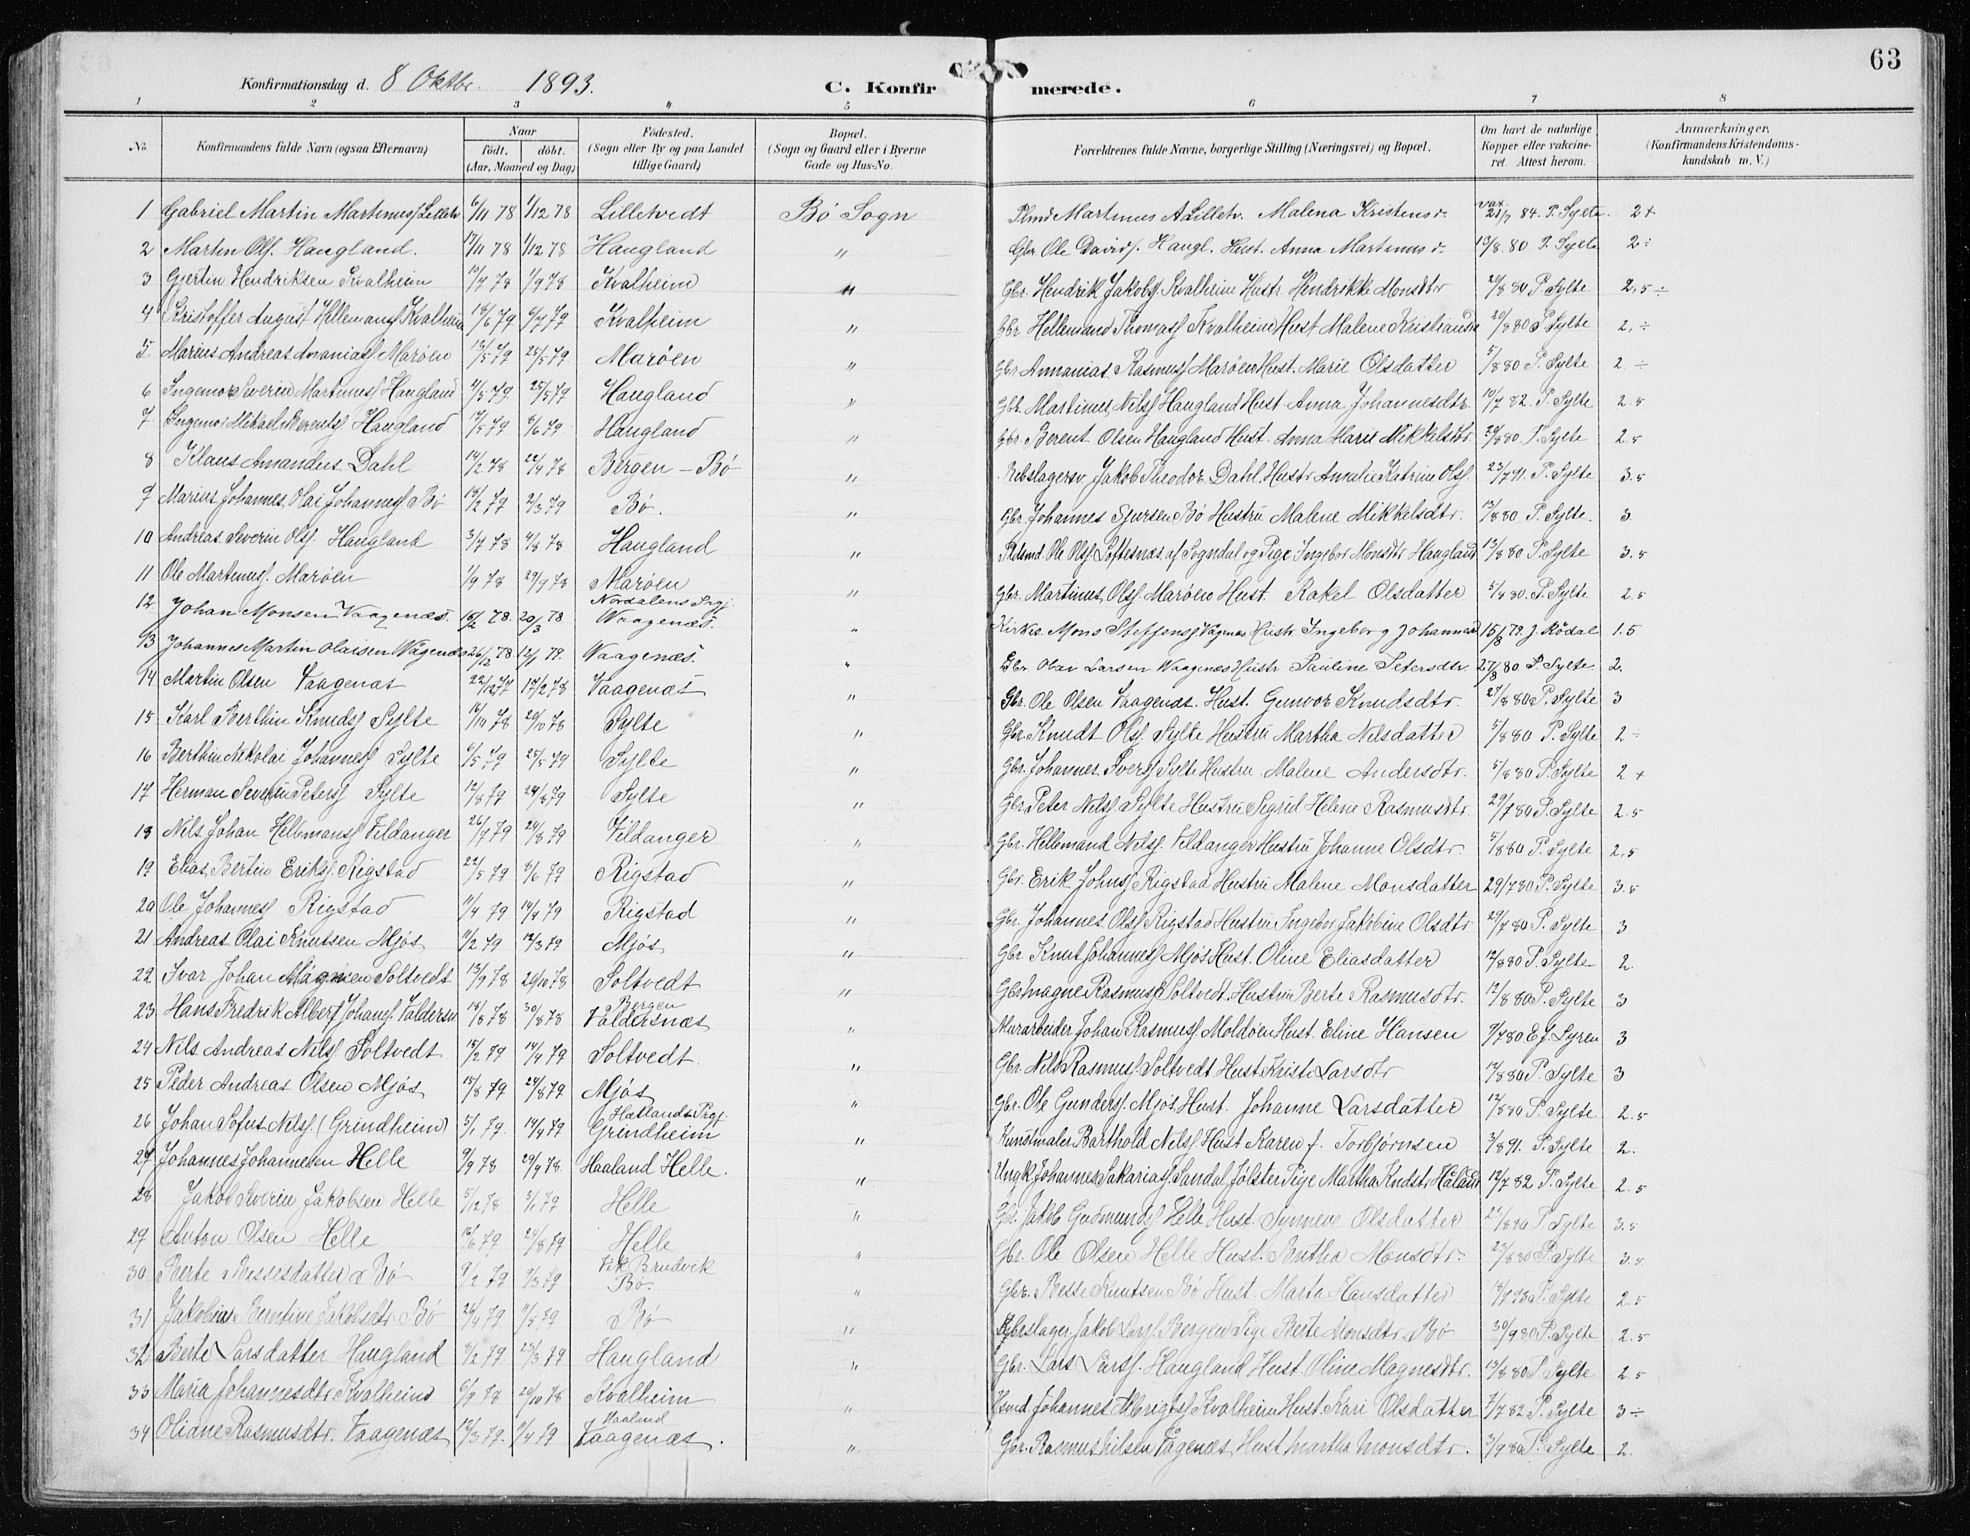 63
Konfirmationsdag d. 8 Oktbr. 1893. C. Konfirmerede.
1 2 3 4 5 6 7 8
No. Konfirmandens fulde Navn (ogsaa Efternavn) Naar født. døbt. (Aar, Maaned og Dag) Fødested. (Sogn eller By og paa Landet tillige Gaard) Bopæl. (Sogn og Gaard eller i Byerne Gade og Hus-No. Forældrenes fulde Navne, borgerlige Stilling (Næringsvei) og Bopæl. Om havt de naturlige Kopper eller vakcineret. Attest herom. Anmærkninger. (Konfirmandens Kristendomskundskab m. V.)
1 Gabriel Martin Martinuss Lilletv 6/11 78 1/12 78 Lilletvedt Bø Sogn Martinus A Lilletv. Malena Kristensd 84. P. Sylte. 2+
2 Martin Ols. Haugland. 17/11 78 1/12 78 Haugland " Gbr. Ole Davids. Haugl. Hust. Anna Martinusd 13/8 80 P. Sylte 2÷
3 Gjertin Hendriksen Kvalheim 78 1/9 78 Kvalheim " Gbr. Hendrik Jakobs Kvalheim Hustr. Hendrikke Monsdtr 80 P. Sylte 2,5÷
4 Kristoffer August Hellemans Kvalheim 79 6/7 79 Kvalheim " Gbr. Hellemand Thomass Kvalheim Hust Malene 80 P. Sylte 2,÷
5. Marius Andreas Ananiass Marøen 13/5 79 25/5 79 Marøen " Gbr Annanias Rasmuss Marøen Hust. Marie Olsdatter 5/8 80 P. Sylte 2÷
6 Ingemor Severin Martinuss Haugland 4/5 79 25/5 79 Haugland " Gbr. Martinus Nilss Haugland Hust Anna Johannesdtr. 10/7 82. P. Sylte 2.5
7 Ingemor Mikael Berents Haugland 79 8/6 79 Haugland " Gbr. Berent Olsen Haugland Hust. Anna Marie Mikkelsdtr. 80 P. Sylte 2.5
8 Klaus Amandus Dahl 14/2 78 22/4 78 Bergen - Bø " Rebslagersv. Jakob Theodor Dahl Hustr Amalie Katrine Ols. P. Sylte 3.5
9 Marius Johannes Olai Johanness Bø 79 2/3 79 Bø. " Gbr. Johannes Sjursen Bø Hustru Malene Mikkelsdtr. 80 P. Sylte. 3
10 Andreas Severin Ols. Haugland 3/7 78 4/8 78 Haugland " Ole Ols Loftesnæs af Sogndal og Pige Ingebor Monsdtr Haugland 13/8 80 P. Sylte 3.5
11 Ole Martinuss. Marøen 1/9 78 29/9 78 Marøen " Gbr. Martinus Olss Marøen Hust. Rakel Olsdatter 5/8 80. P. Sylte 2.5
12. Johan Monsen Vaagenæs. 78 20/3 78 Waagenæs. " Kirkes. Mons Steffens Vågenæs Hustr. Ingeborg Johannesd 15/8 79. J. Rødal 1.5
13 Johannes Martin Olaisen Wågenæs 26/12 78 12/1 79. Vaagenæs. " Gbr Olai Larsen Waagenæs Hustr Pauline Petersdtr. 27/8 80 P. Sylte 2.
14 Martin Olsen Vaagenæs 22/12 77 17/2 78 Vaagenæs " Gbr. Ole Olsen Vaagenæs. Hust. Gunvor Knudsdtr. 80 P. Sylte 3
15 Karl Berthin Knuds Sylte 78 20/10 78 Sylte " Gbr. Knudt Ols. Sylte Hustru Martha Nilsdatter 5/8 80 P. Sylte 2÷
16 Berthin Nikolai Johanness Sylte 6/5 79 25/5 79 Sylte " Gbr. Johannes Ivers Sylte Hustru Malene Andersdtr. 5/8 80 P. Sylte 2+
17 Herman Severin Peters Sylte 12/8 79 24/8 79 Sylte " Gbr. Peter Nilss Sylte Hustru Sigrid Helene Rasmusdtr. 29/7 80 P. Sylte 2.5
18 Nils Johan Hellemans Vildanger 26/7 79 24/8 79 Vildanger " Gbr. Hellemand Nilss Vildanger Hustru Johanne Olsdtr. 5/8 80 P. Sylte 2.5
19 Elias Bertin Eriks. Rigstad 22/5 79 8/6 79 Rigstad " Gbr. Erik Johns Rigstad Hustru Malene Monsdatter 29/7 80 P. Sylte 3.5
20 Ole Johanness Rigstad 79 14/4 79 Rigstad " Gbr. Johannes Olss Rigstad Hustru Ingebor Jakobine Olsdtr 29/7 80 P. Sylte 3
21 Andreas Olai Knutsen Mjøs 11/2 79 79 Mjøs " Gbr Knut Johanness Mjøs Hust. Oline Eliasdatter 80 P. Sylte 2.
22 Ivar Johan Magnesen Soltvedt 13/9 78 20/10 78 Soltvedt " Gbr Magne Rasmuss Soltvedt. Hustru Berte Rasmusdtr. 12/8 80 P. Sylte 3
23 Hans Fredrik Albert Johans. Valdersn 18/8 78 30/8 78 Bergen Valdersnæs " Murarbeider Johan Rasmuss Moldøen Hust. Eline Hansen 80 E.J. Syren 3
24 Nils Andreas Nilss Soltvedt 12/2 79 14/4 79 Soltvedt " Gbr. Nils Rasmuss. Soltvedt Hust Kristi Larsdtr 80 P. Sylte 3
25 Peder Andreas Olsen Mjøs 15/8 79 24/8 79 Mjøs " Gbr. Ole Gunders. Mjøs Hust. Johanne Larsdatter 80 P. Sylte 2.5
26 Johan Sofus Nilss. (Grindheim) 5/1 79. 14/4 79 Hætlands Prgj. Grindheim " Kunstmaler Barthold Nilss Hust Karen f. Torbjørnsen 3/8 91. P. Sylte 2.
27 Johannes Johannesen Helle 9/9 78 29/9 78. Haaland Helle. " Ungk Johannes Sakariass Sandal Jølster Pige Martha Kndtr Håland 12/7 82 P. Sylte 2.5
28 Jakob Severin Jakobsen Helle 5/12 78 5/1 79 Helle " Gbr. Jakob Gudmunds Helle Hust. Synneve Olsdatter 80 P. Sylte 3.5
29 Anton Olsen Helle 16/6 79 24/8 79 Helle " Gbr. Ole Olsen Helle Hust. Brita Monsdtr. 80 P. Sylte 3.5
30 Berte Bessesdatter Bø 9/2 79 9/3 79 Brudvik Bø. " Gbr. Besse Knutsen Bø Hust. Marta Hansdatter P. Sylte 2.5
31 Jakobine Berntine Jakobsdtr Bø 26/4 79 11/5 79 Bø " Jakob Lars. Bergen Pige Berte Monsdtr. Bø 30/9 80 P. Sylte 2.5
32 Berte Larsdatter Haugland 3/2 79 23/3 79 Haugland " Gbr. Lars Larss. Haugland Hust Oline Magnesdtr. 13/8 80 P. Sylte 2.5
33 Maria Johannesdtr. Kvalheim 78 20/10 78 Kvalheim " Hsmd Johannes Kvalheim Hust Kari Olsdatter 7/7 82 P. Sylte 3÷
34 Oliane Rasmusdtr. Vaagenæs 79. 79 Haaland Vaagenæs. " Gbr. Rasmus Nilsen Vågenæs Hust Martha Monsdtr. 3/9 80 P. Sylte 2.